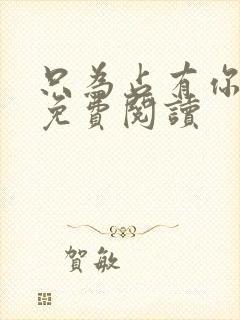 只為占有你
免費閱讀
賀敏